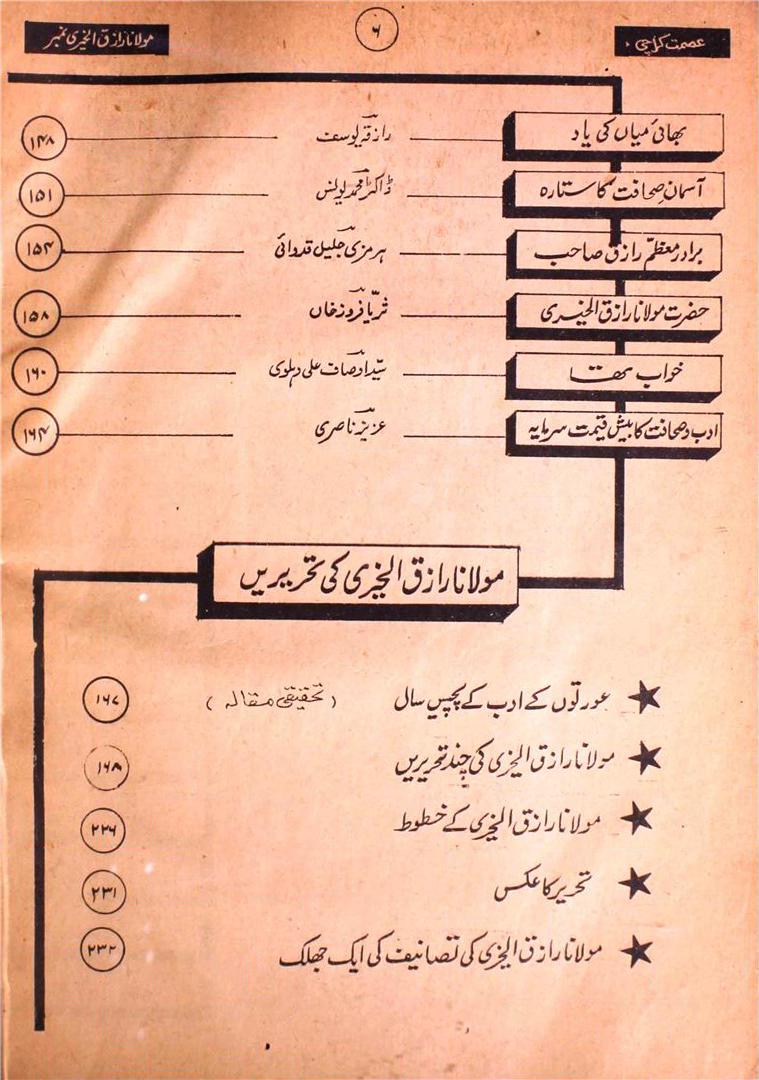 عصمت کراچی ۔ ۶ مولانا رازق الخیری نمبر
بھائی میاں کی یاد رازقہ یوسف ۱۴۸
آسمانِ صحافت کا ستارہ ڈاکٹر محمد یونس ۱۵۱
برادر معظم رازق صاحب ہرمزی جلیل قدوائی ۱۵۴
حضرت مولانا رازق الخیری ثریا فروز خاں ۱۵۸
خواب تھا سید اوصاف علی دہلوی ۱۶۰
ادب و صحافت کا بیش قیمت سرمایہ عزیز ناصری ۱۶۴
مولانا رازق الخیری کی تحریریں
★ عورتوں کے ادب کے پچیس سال ( تحقیقی مقالہ ) ۱۶۷
★ مولانا رازق الخیری کی چند تحریریں ۱۶۸
★ مولانا رازق الخیری کے خطوط ۲۲۶
★ تحریر کا عکس ۲۳۱
★ مولانا رازق الخیری کی تصانیف کی ایک جھلک ۲۳۲